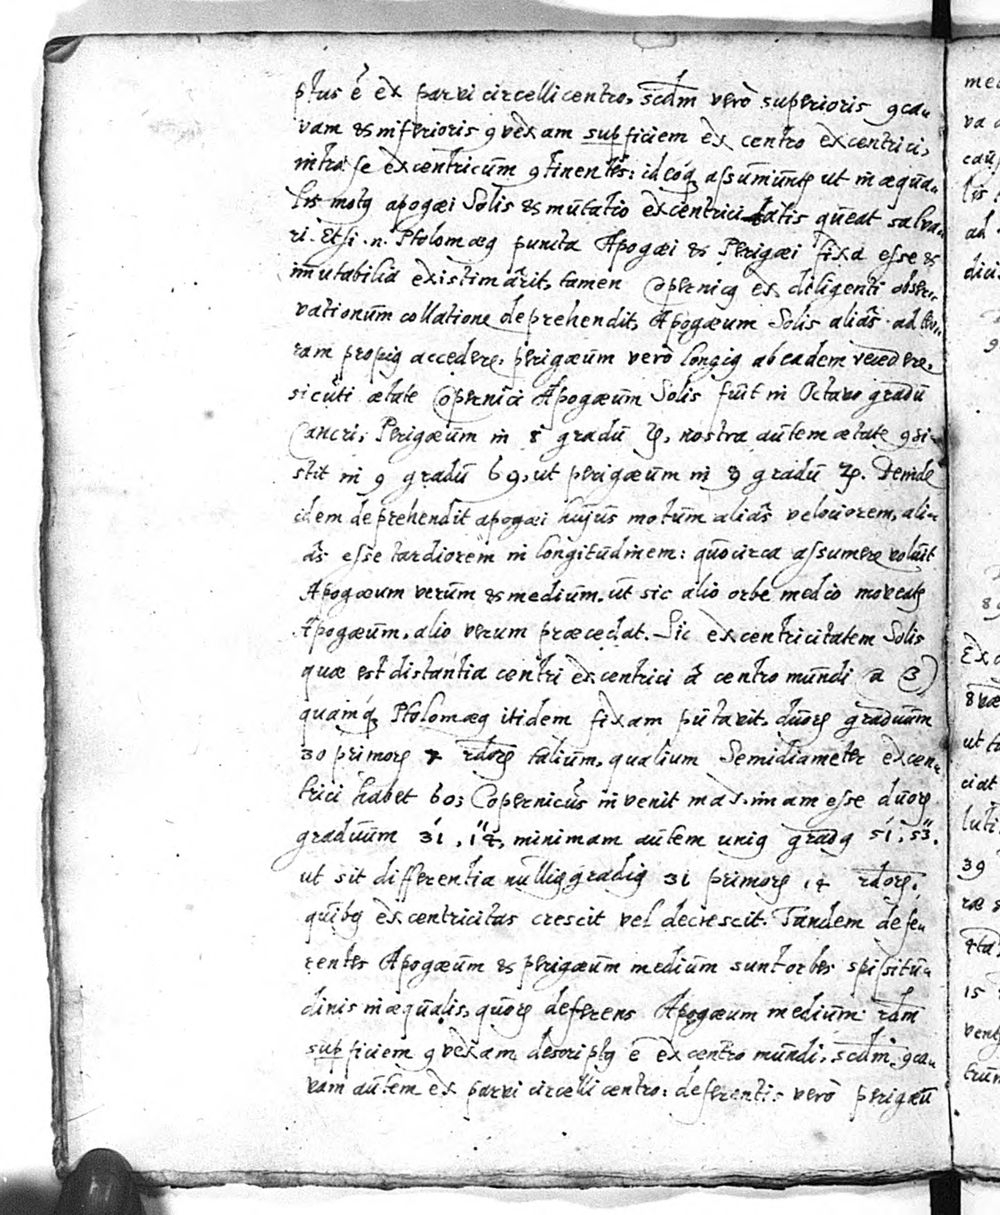 ptus ē ex parvi circelli centro, scdm verò superioris 9ca„
vam & inferioris 9vexam supficiem ex centro excentrici,
intra se excentricum 9tinentes: ideoq₃ assumunt₉ ut inæqua„
lis mot₉ apogæi Solis & mutatio excentricitatis queat salva„
ri. Etsi .n. Ptolomæ₉ puncta Apogæi & Perigæi fixa esse &
imutabilia existimârit, tamen Copernic₉ ex diligenti obser„
vationum collatione deprehendit, Apogæum Solis aliâs ad ter„
ram propi₉ accedere, perigæum verò longi₉ ab eadem recedere.
sicuti ætate Copernici Apogæum Solis fuit in Octavo gradu
Cancri, Perigæum in 8 gradu ♑, nostra autem ætate 9si„
stit in 9 gradu ♋, ut perigæum in 9 gradu ♑. Deinde
idem deprehendit apogæi hujus motum aliâs velociorem, ali„
âs esse tardiorem in longitudinem: quocirca assumere voluit
Apogæum verum & medium, ut sic alio orbe medio moveat₉
Apogæum, alio verum præcedat. Sic excentricitatem Solis
quæ est distantia centri excentrici à centro mundi
quamq₃ Ptolomæ₉ itidem fixam putavit, duor₉ graduum
30 primor₉ & rdor₉ talium, qualium Semidiameter excen„
trici habet 60; Copernicus invenit maximam esse duor₉
graduum 31', 1₄'', minimam autem uni₉ grad₉ 51', 53''.
ut sit differentia nulli₉ gradi₉ 31 primor₉ 14 rdor₉,
quib₉ excentricitas crescit vel decrescit. Tandem defe„
rentes Apogæum & perigæum medium sunt orbes spissitu„
dinis inæqualis, quor₉ deferens Apogæum medium rdm
supficiem 9vexam, descript₉ ē ex centro mundi, scdm 9ca„
vam autem ex parvi circelli centro: deferentis verò perigæū